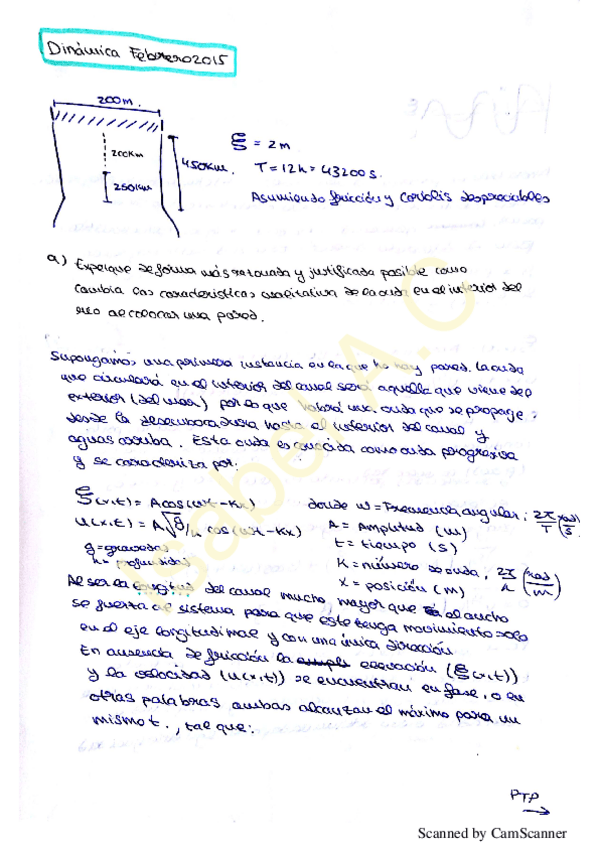 Dinámica Febrero 2015
200m.
200Km
250Km
450Km.
ξ = 2m
T = 12h = 43200s.
Asumiendo fricción y Coriolis despreciables
a) Explique de forma más razonada y justificada posible como
cambia las características cualitativa de la onda en el interior del
río al colocar una pared.
Supongamos una primera instancia en la que no hay pared. La onda
que circulará en el interior del canal será aquella que viene del
exterior (del mar) por lo que habrá una onda que se propage
desde la desembocadura hasta el interior del canal y
aguas arriba. Esta onda es conocida como onda progresiva
y se caracteriza por:
ξ(x,t) = A cos(wt-Kx)
donde w = Frecuencia angular; 2π/T (rad/s)
u(x,t) = A√g/h cos(wt-Kx)
A = Amplitud (m)
g = gravedad
t = tiempo (s)
h = profundidad
K = número de onda, 2π/λ (rad/m)
x = posición (m)
Al ser la longitud del canal mucho mayor que el ancho
se fuerza al sistema para que este tenga movimiento solo
en el eje longitudinal y con una única dirección
En ausencia de fricción la elevación (ξ(x,t))
y la velocidad (u(x,t)) se encuentran en fase, o en
otras palabras ambas alcanzan el máximo para un
mismo t., tal que:
PTP
Isabel A.C
Scanned by CamScanner